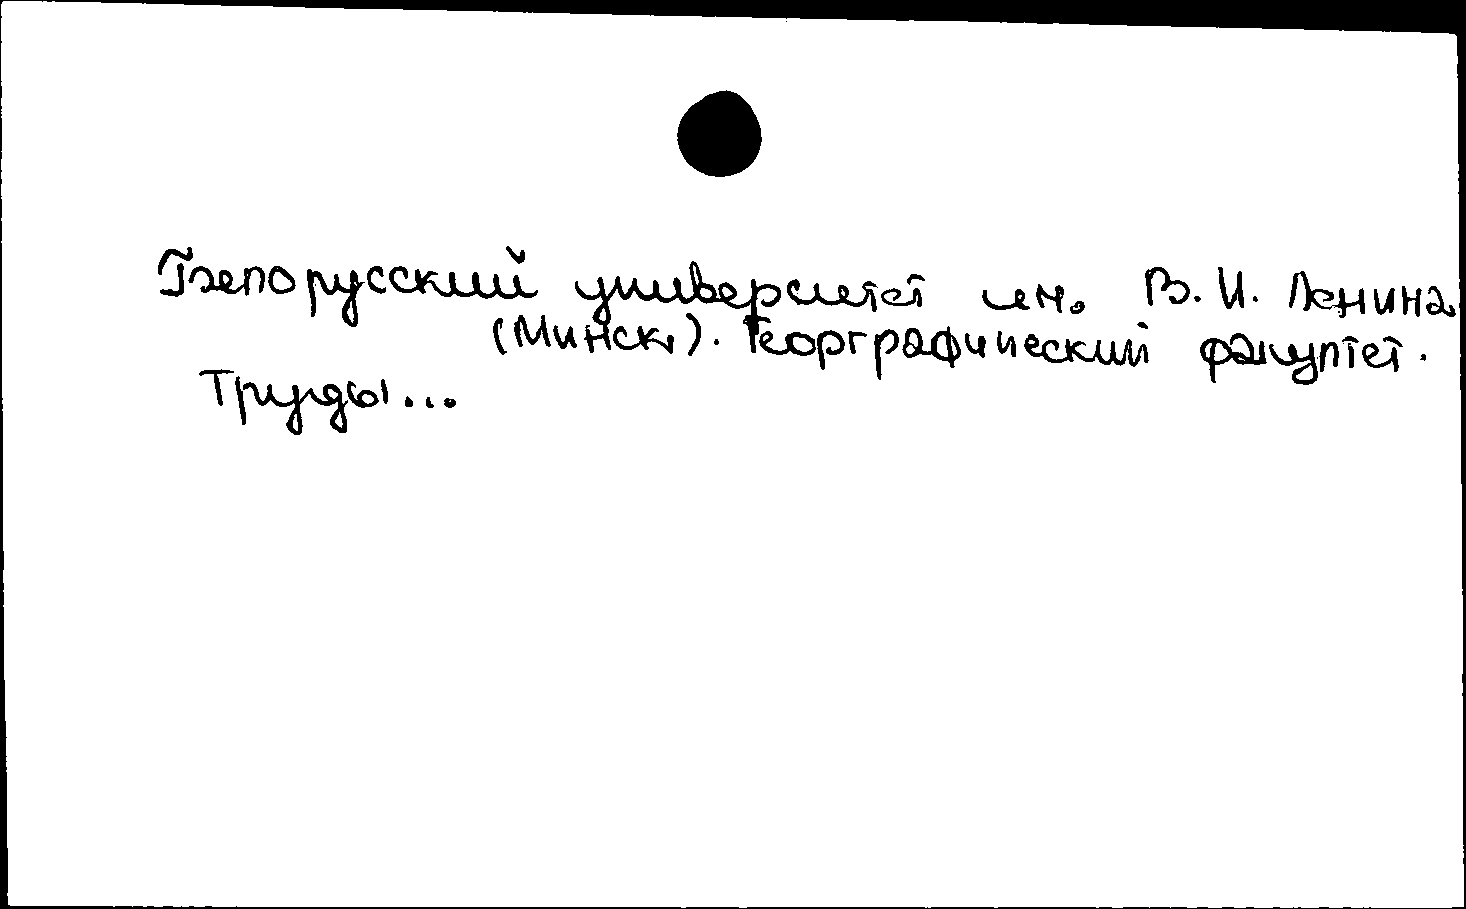 Белорусский университет им. В. И. Ленина
(Минск). Георграфический факультет.
Труды...